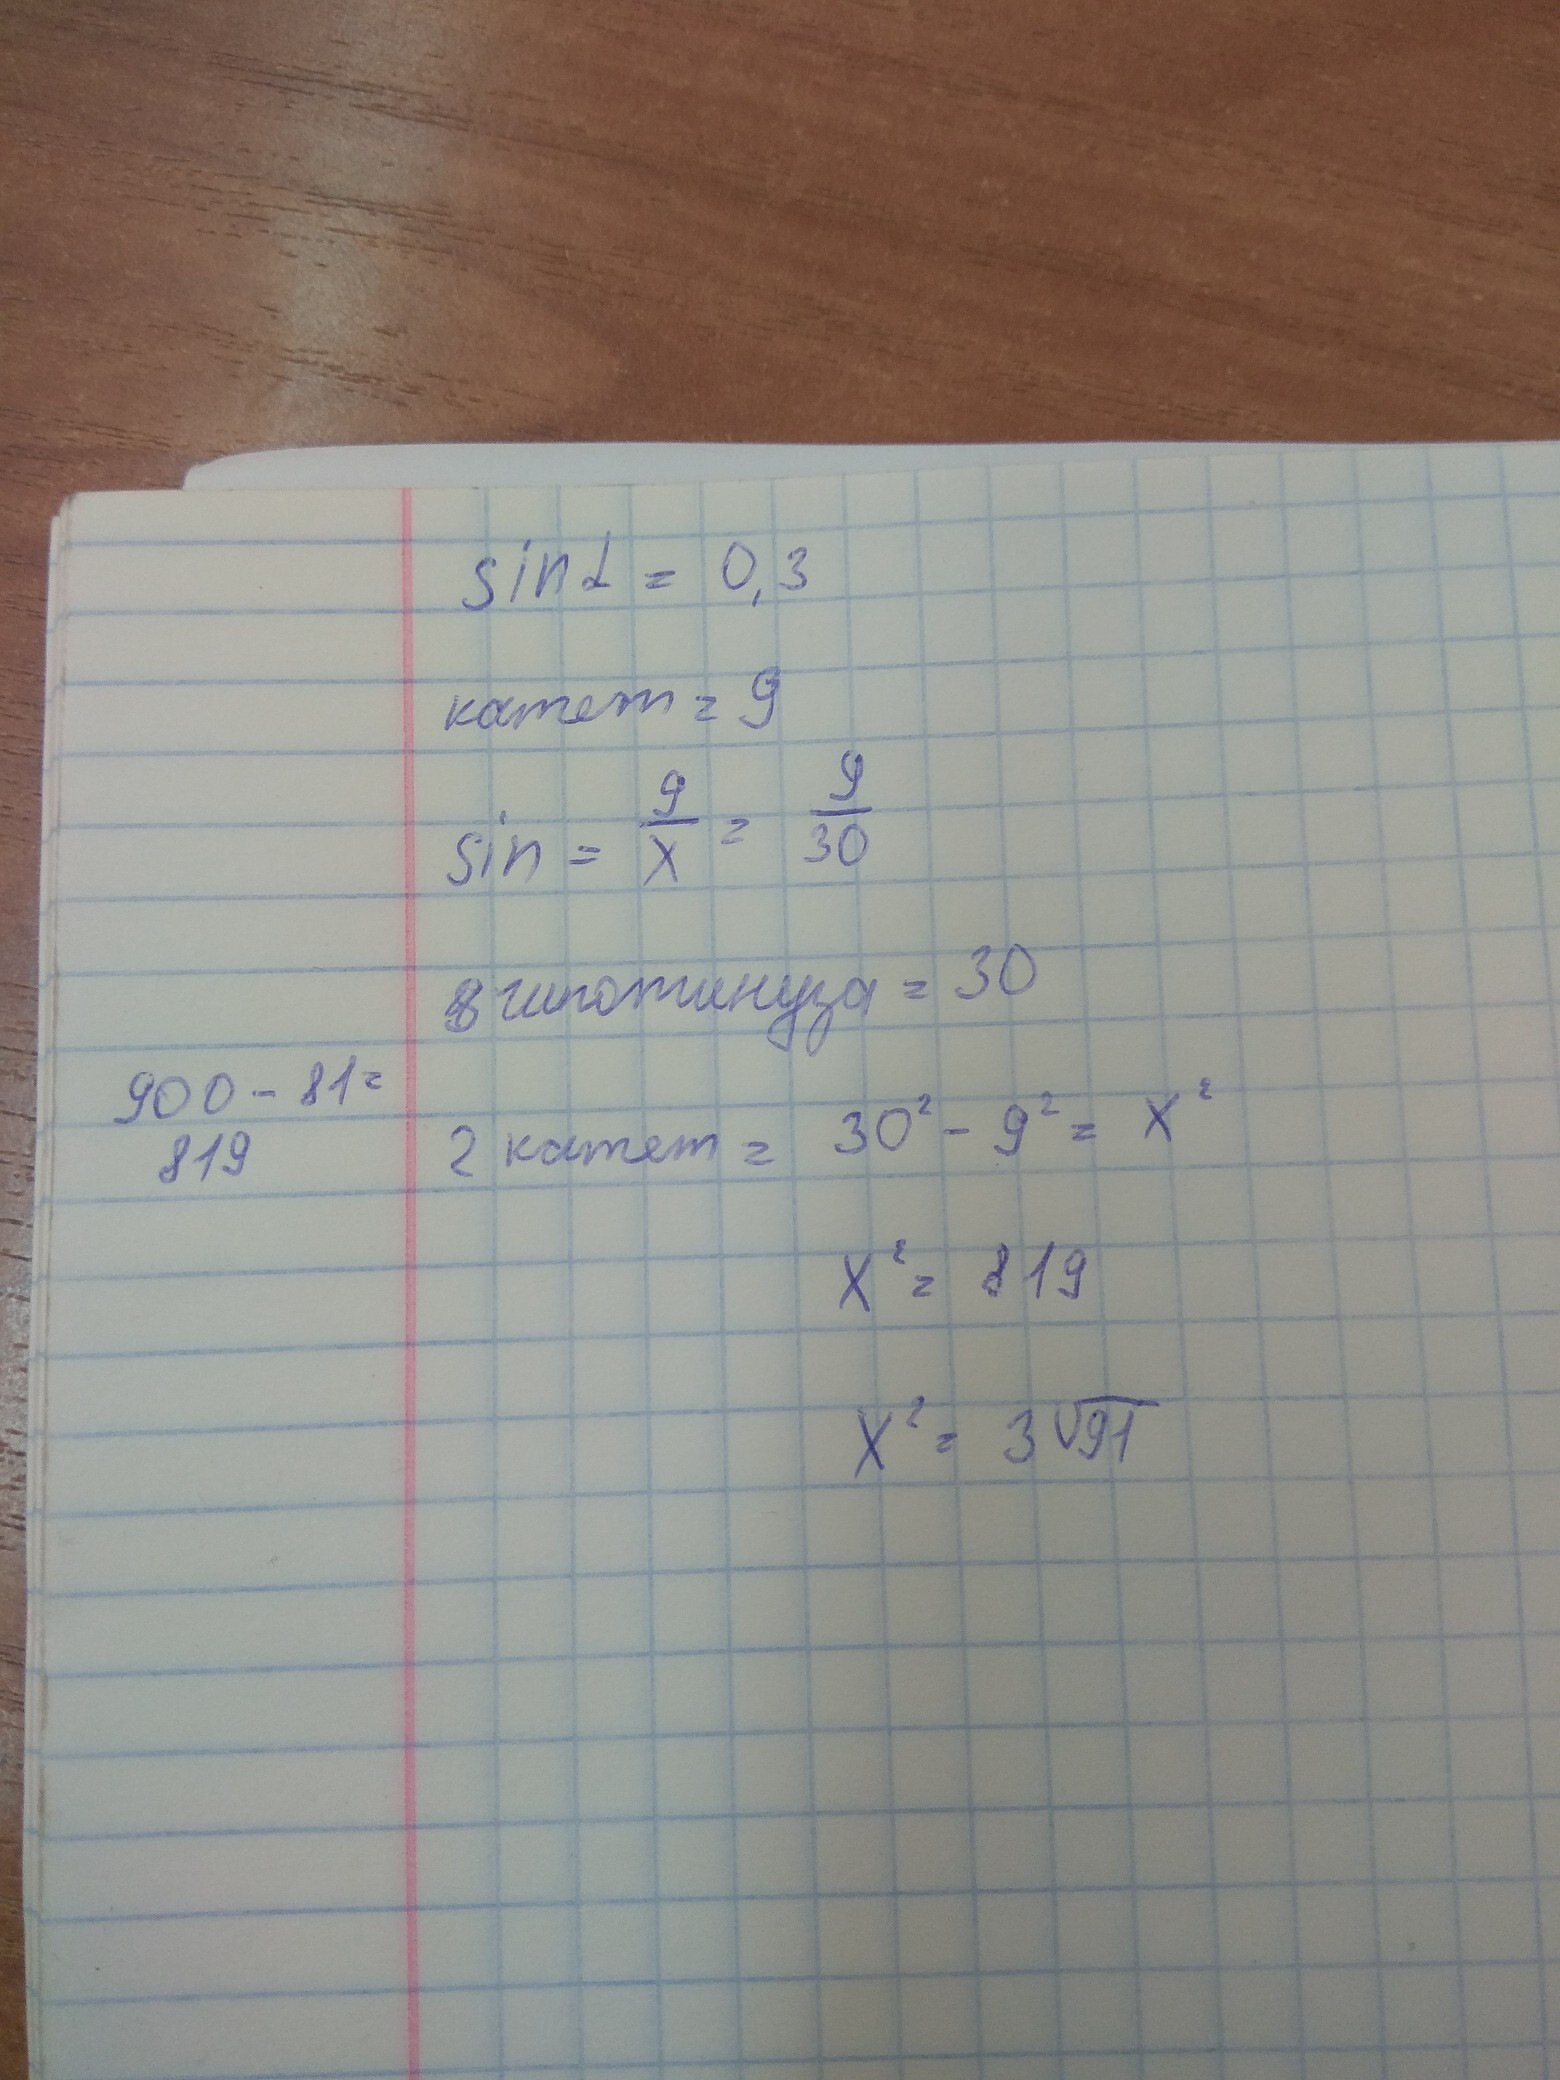 sinα = 0,3
катет = 9
sin = 9/x = 9/30
гипотинуза = 30
900 - 81 =
819
2 катет = 30² - 9² = x²
x² = 819
x² = 3√91